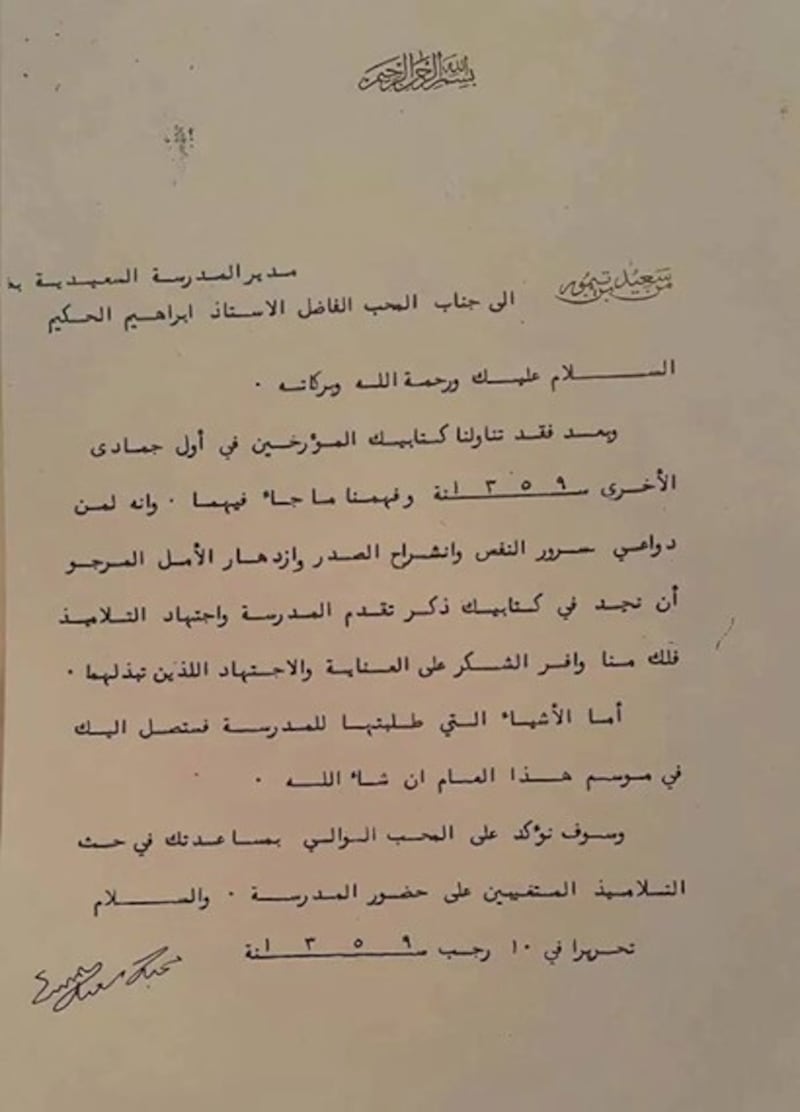 بسم الله الرحمن الرحيم
من سعيد بن تيمور
مدير المدرسة السعيدية
الى جناب المحب الفاضل الاستاذ ابراهيم الحكيم
السلام عليك ورحمة الله وبركاته ٠
وبعد فقد تناولنا كتابيك المؤرخين في أول جمادى
الأخرى سنة ١٣٥٩ وفهمنا ما جاء فيهما ٠ وانه لمن
دواعي سرور النفس وانشراح الصدر وازدهار الأمل المرجو
أن نجد في كتابيك ذكر تقدم المدرسة واجتهاد التلاميذ
فلك منا وافر الشكر على العناية والاجتهاد اللذين تبذلهما ٠
أما الأشياء التي طلبتها للمدرسة فستصل اليك
في موسم هذا العام ان شاء الله ٠
وسوف نؤكد على المحب الوالي بمساعدتك في حث
التلاميذ المتغيبين على حضور المدرسة ٠ والسلام
تحريرا في ١٠ رجب سنة ١٣٥٩